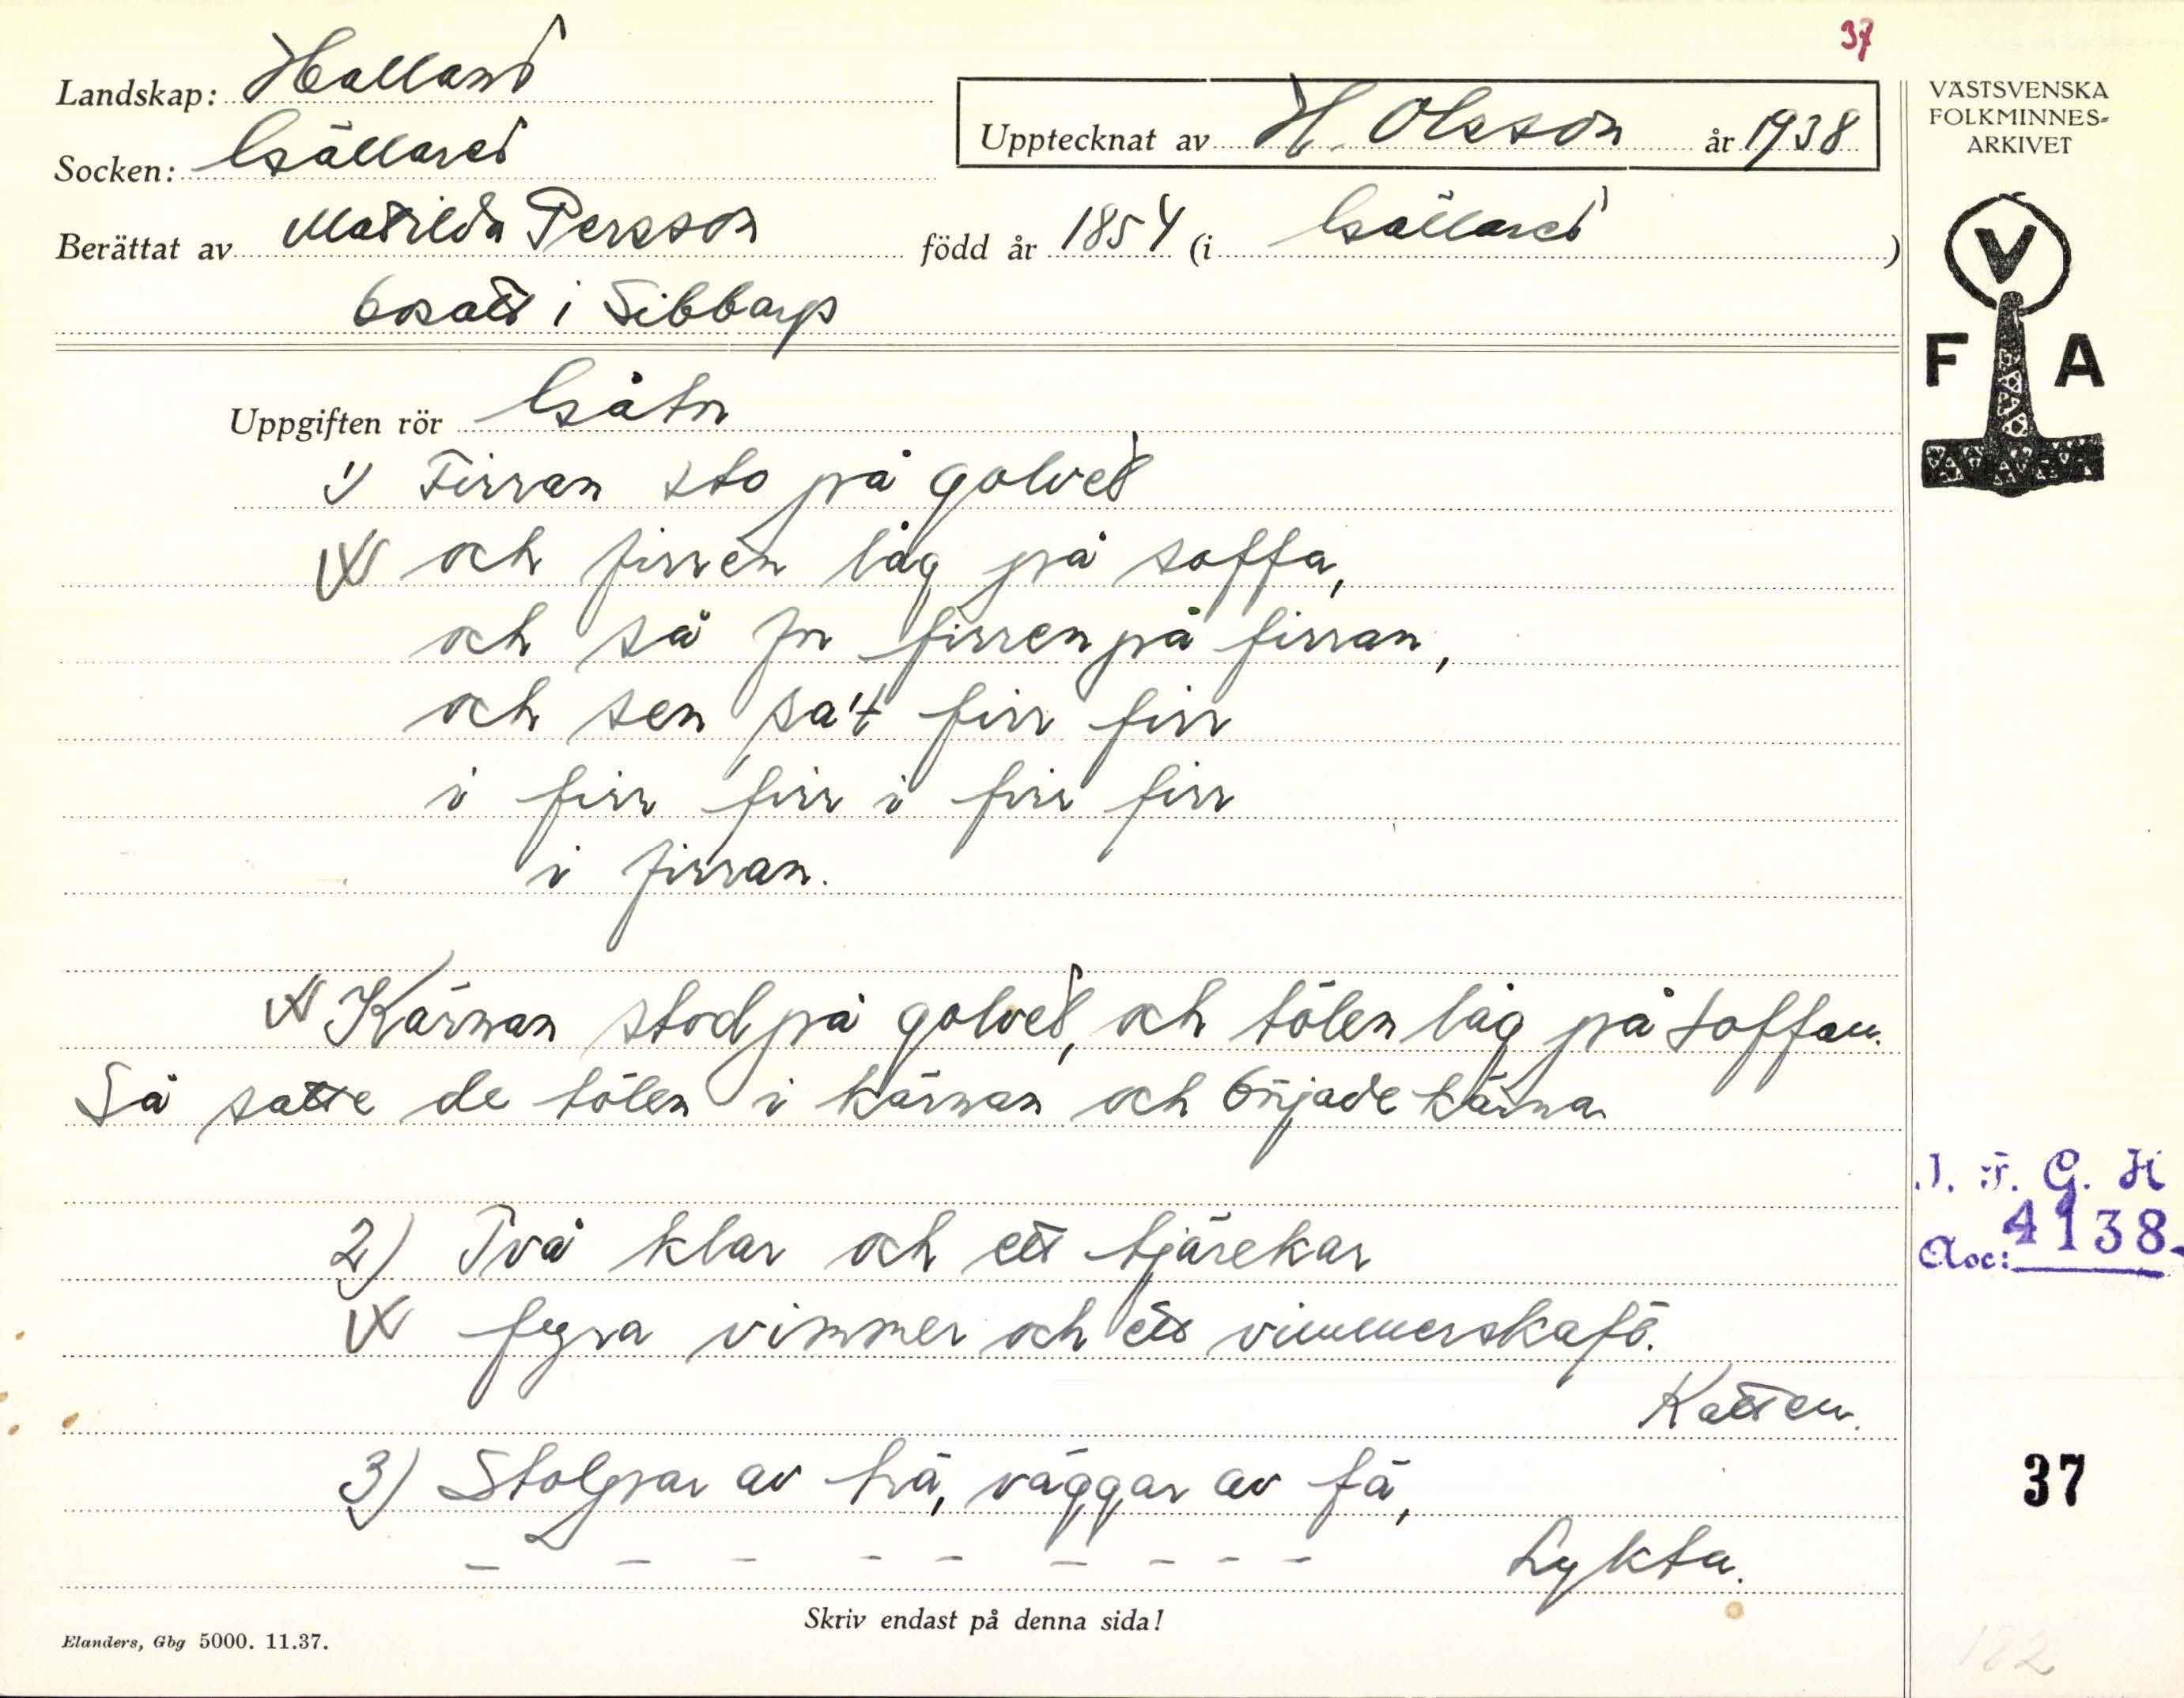 37
Landskap: Halland
Socken: Gällared
Upptecknat av H. Olsson år 1938
Berättat av Matilda Persson född år 1854 (i Gällared)
bosatt i Sibbarp
Uppgiften rör Gåtor
1) Firran sto på golvet
och firren låg på soffa,
och så for firren på firran,
och sen sa't firr firr
i firr firr i firr firr
i firran.
Kärnan stod på golvet, och tölen låg på soffan.
Så satte de tölen i kärnan och började kärna.
2) Två klar och ett tjärekar
fyra vimmer och ett vimmerskaft.
Katten.
3) Stolpar av trä, väggar av fä,
– – – – – – – – – Lykta.
Skriv endast på denna sida!
Elanders, Gbg 5000. 11.37.
VÄSTSVENSKA
FOLKMINNES-
ARKIVET
V
F A
I. F. G. H
Acc: 4138
37
182